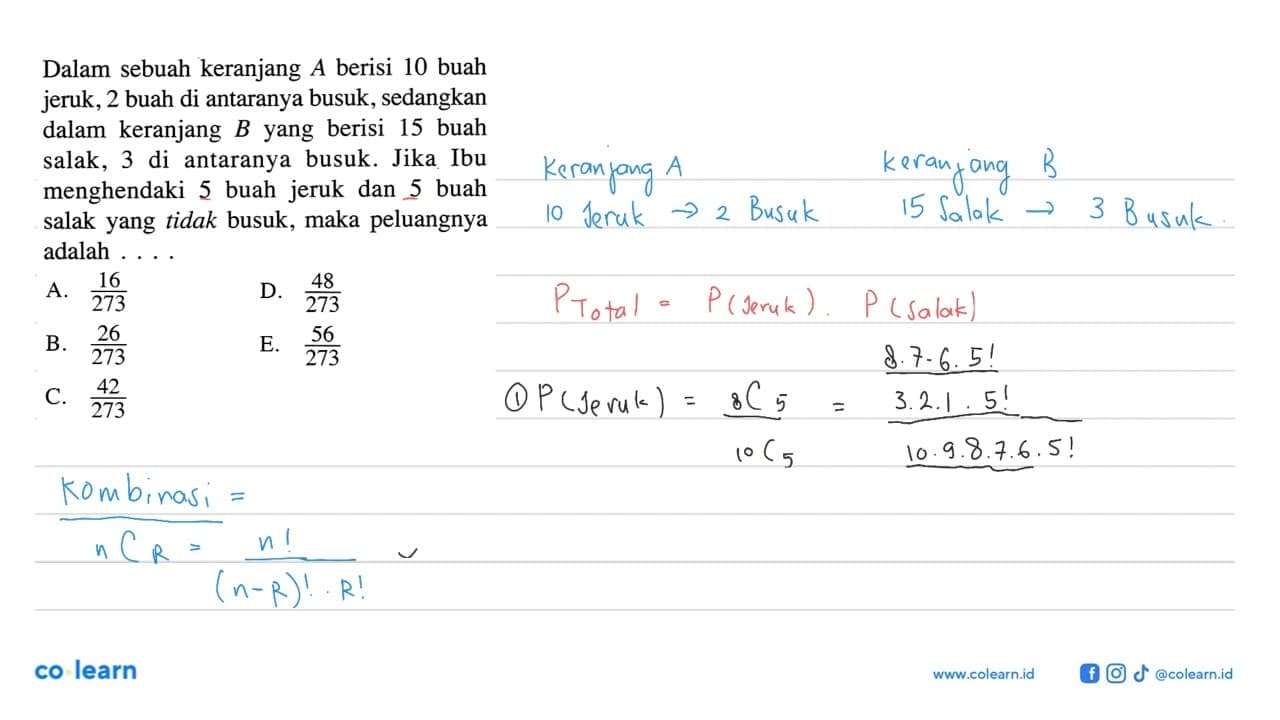 Dalam sebuah keranjang A berisi 10 buah
jeruk, 2 buah di antaranya busuk, sedangkan
dalam keranjang B yang berisi 15 buah
salak, 3 di antaranya busuk. Jika Ibu
menghendaki 5 buah jeruk dan 5 buah
salak yang tidak busuk, maka peluangnya
adalah . . . .
A. 16/273
B. 26/273
C. 42/273
D. 48/273
E. 56/273
Keranjang A
10 Jeruk → 2 Busuk
keranjang B
15 Salak → 3 Busuk
P Total = P(Jeruk) . P(Salak)
① P(Jeruk) = 8C5 / 10C5 = (8.7.6.5! / 3.2.1.5!) / 10.9.8.7.6.5!
Kombinasi =
nCR = n! / (n-R)! . R!
co learn
www.colearn.id
@colearn.id